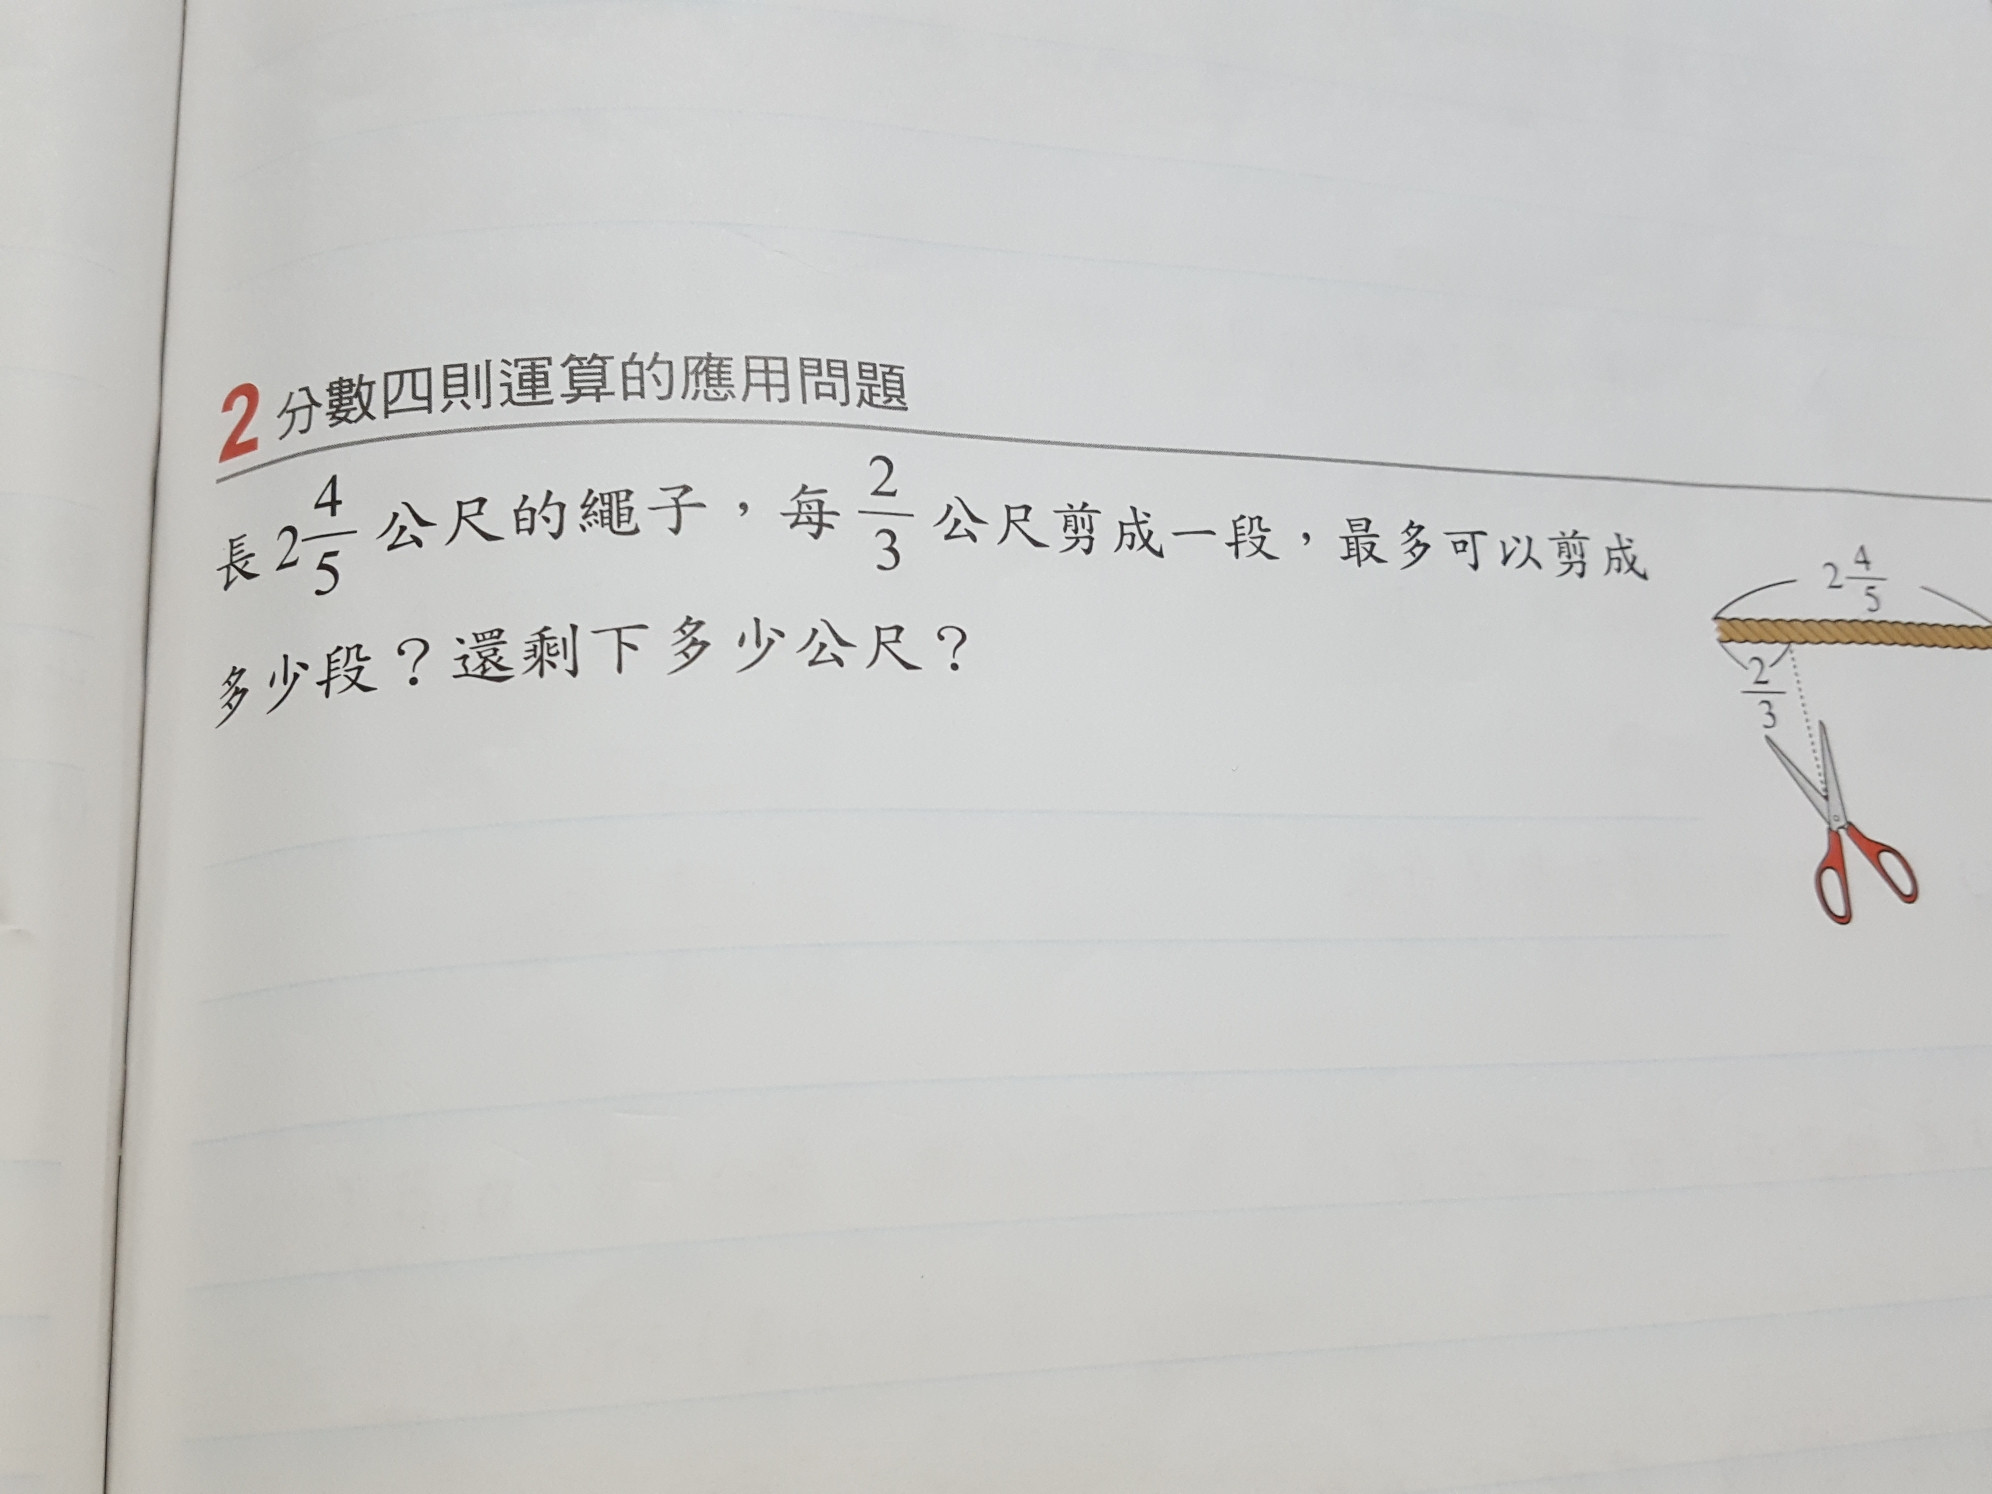 2 分數四則運算的應用問題
長 2 4/5 公尺的繩子，每 2/3 公尺剪成一段，最多可以剪成
多少段？還剩下多少公尺？
2 4/5
2/3